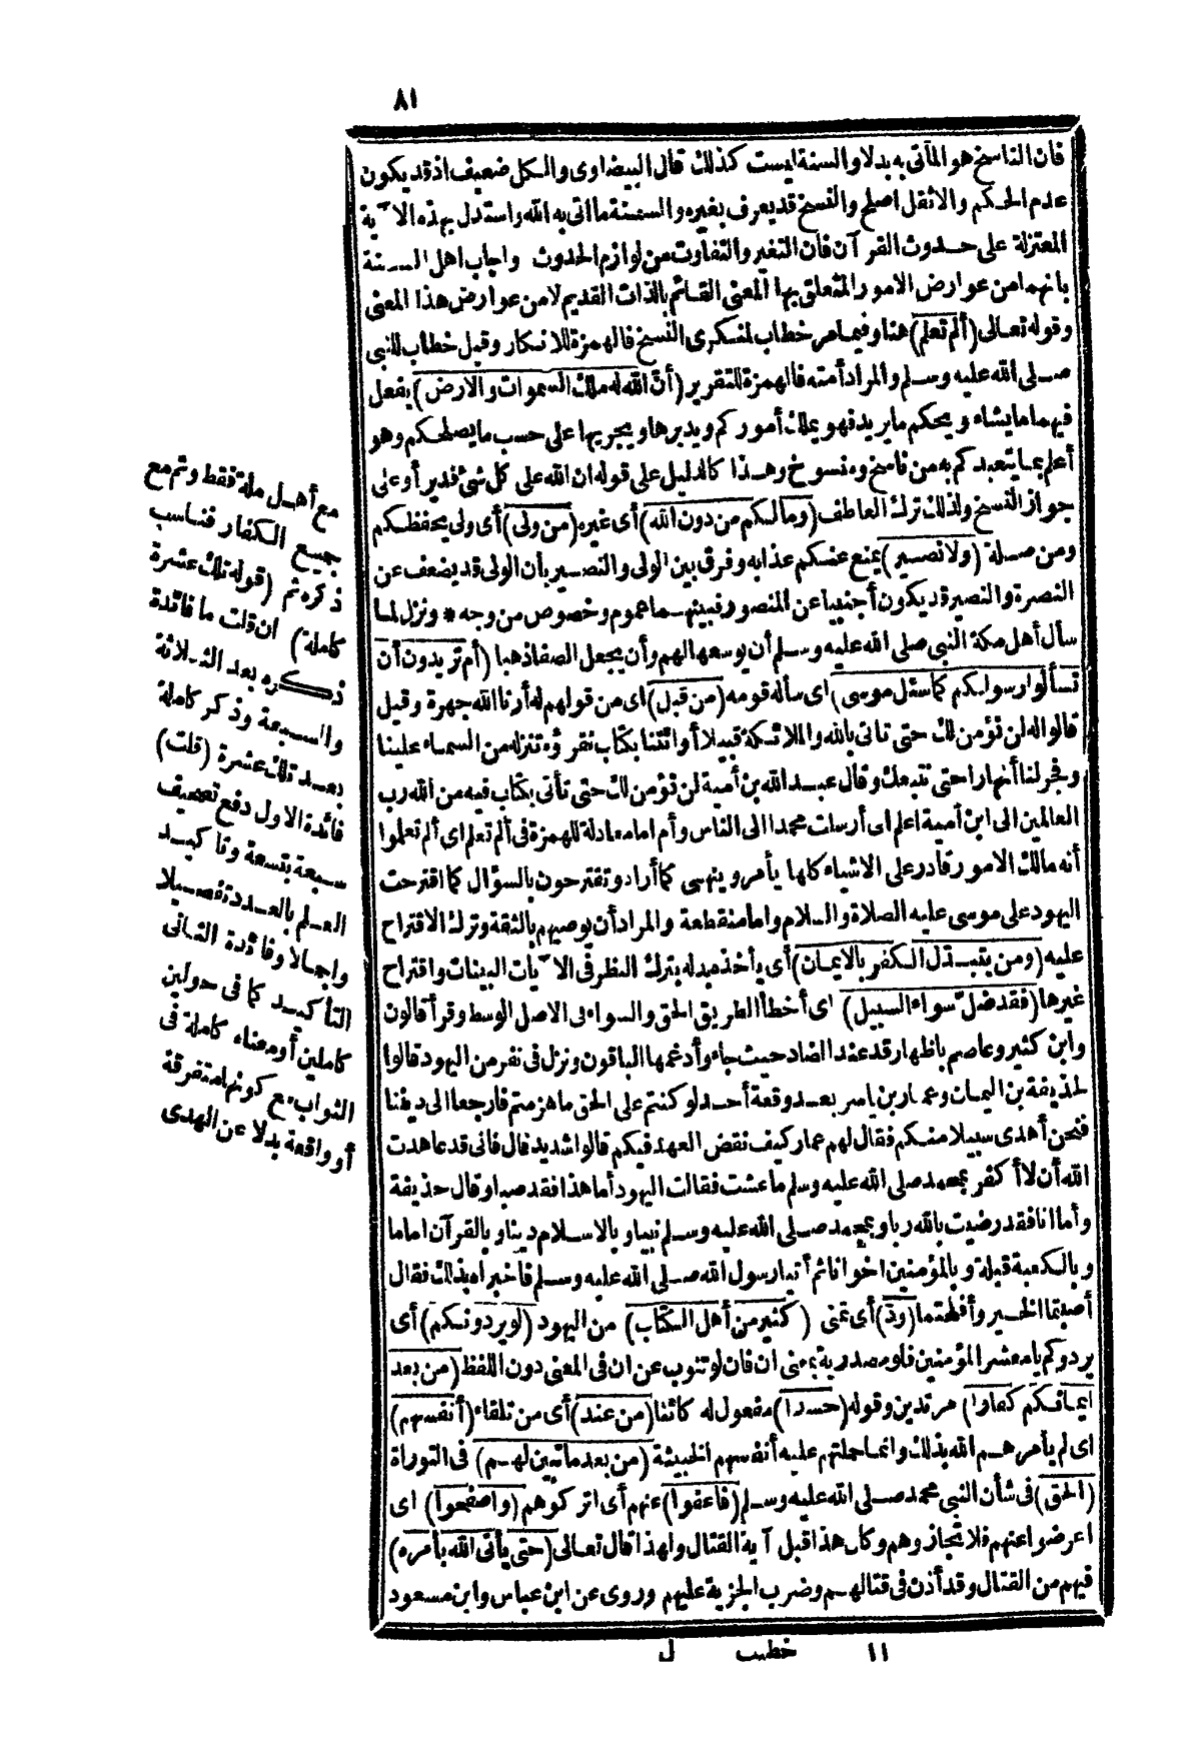 ٨١
فان الناسخ هو المأتى به بدلا والسنة ليست كذلك قال البيضاوى والكل ضعيف اذ قد يكون
عدم الحكم والاثقل اصلح والنسخ قد يعرف بغيره والسنة مما اتى به الله واستدل بهذه الآية
المعتزلة على حدوث القرآن فان التغير والتفاوت من لوازم الحدوث واجاب اهل السنة
بانهما من عوارض الامور المتعلق بها المعنى القائم بالذات القديم لا من عوارض هذا المعنى
وقوله تعالى (ألم تعلم) هنا وفيما مر خطاب لمنكرى النسخ فالهمزة للانكار وقيل خطاب للنبى
صلى الله عليه وسلم والمراد أمته فالهمزة للتقرير (أن الله له ملك السموات والارض) يفعل
فيهما ما يشاء ويحكم ما يريد فهو يملك أموركم ويدبرها ويجريها على حسب ما يصلحكم وهو
أعلم بما يتعبدكم به من ناسخ ومنسوخ وهذا كالدليل على قوله ان الله على كل شئ قدير أو على
جواز النسخ ولذلك ترك العاطف (وما لكم من دون الله) أى غيره (من ولى) أى ولى يحفظكم
ومن صلة (ولا نصير) يمنع عنكم عذابه وفرق بين الولى والنصير بأن الولى قد يضعف عن
النصرة والنصير قد يكون أجنبيا عن المنصور فبينهما عموم وخصوص من وجه * ونزل لما
سأل أهل مكة النبى صلى الله عليه وسلم أن يوسعها لهم وأن يجعل الصفا ذهبا (أم تريدون أن
تسألوا رسولكم كما سئل موسى) اى سأله قومه (من قبل) اى من قولهم له أرنا الله جهرة وقيل
قالوا له لن نؤمن لك حتى تاتى بالله والملائكة قبيلا أو ائتنا بكتاب نقرؤه تنزله من السماء علينا
وفجر لنا أنهارا حتى نتبعك وقال عبد الله بن أمية لن نؤمن لك حتى تأتى بكتاب فيه من الله رب
العالمين الى ابن أمية اعلم اى أرسلت محمدا الى الناس وأم اما معادلة للهمزة فى ألم تعلم اى ألم تعلموا
أنه مالك الامور قادر على الاشياء كلها يأمر وينهى كما أراد وتقترحون بالسؤال كما اقترحت
اليهود على موسى عليه الصلاة والسلام واما منقطعة والمراد أن يوصيهم بالثقة وترك الاقتراح
عليه (ومن يتبدل الكفر بالايمان) أى يأخذه بدله بترك النظر فى الآيات البينات واقتراح
غيرها (فقد ضل سواء السبيل) اى أخطأ الطريق الحق والسواء فى الاصل الوسط وقرأ قالون
وابن كثير وعاصم باظهار قد عند الضاد حيث جاء وأدغمها الباقون ونزل فى نفر من اليهود قالوا
لحذيفة بن اليمان وعمار بن ياسر بعد وقعة أحد لو كنتم على الحق ما هزمتم فارجعا الى ديننا
فنحن أهدى سبيلا منكم فقال لهم عمار كيف نقض العهد فيكم قالوا شديد قال فانى قد عاهدت
الله أن لا أكفر بمحمد صلى الله عليه وسلم ما عشت فقالت اليهود أما هذا فقد صبا وقال حذيفة
وأما انا فقد رضيت بالله ربا وبمحمد صلى الله عليه وسلم نبيا وبالاسلام دينا وبالقرآن اماما
وبالكعبة قبلة وبالمؤمنين اخوانا ثم أتيا رسول الله صلى الله عليه وسلم فاخبراه بذلك فقال
أصبتما الخير وأفلحتما (ودّ) أى تمنى (كثير من أهل الكتاب) من اليهود (لو يردونكم) أى
يردوكم يا معشر المؤمنين فلو مصدرية بمعنى ان فان لو تنوب عن ان فى المعنى دون اللفظ (من بعد
ايمانكم كفارا) مرتدين وقوله (حسدا) مفعول له كائنا (من عند) أى من تلقاء (أنفسهم)
اى لم يأمرهم الله بذلك وانما حملتهم عليه أنفسهم الخبيثة (من بعد ما تبين لهم) فى التوراة
(الحق) فى شأن النبى محمد صلى الله عليه وسلم (فاعفوا) عنهم أى اتركوهم (واصفحوا) اى
اعرضوا عنهم فلا تجازوهم وكان هذا قبل آية القتال ولهذا قال تعالى (حتى يأتى الله بأمره)
فيهم من القتال وقد أذن فى قتالهم وضرب الجزية عليهم وروى عن ابن عباس وابن مسعود
مع أهل ملة فقط وثم مع
جميع الكفار فناسب
ذكره ثم (قوله تلك عشرة
كاملة) ان قلت ما فائدة
ذكره بعد الثلاثة
والسبعة وذكر كاملة
بعد تلك عشرة (قلت)
فائدة الاول دفع تصحيف
سبعة بتسعة وتاكيد
العلم بالعدد تفصيلا
واجمالا وفائدة الثانى
التأكيد كما فى حولين
كاملين أو معناه كاملة فى
الثواب مع كونها متفرقة
أو واقعة بدلا عن الهدى
١١ خطيب ل